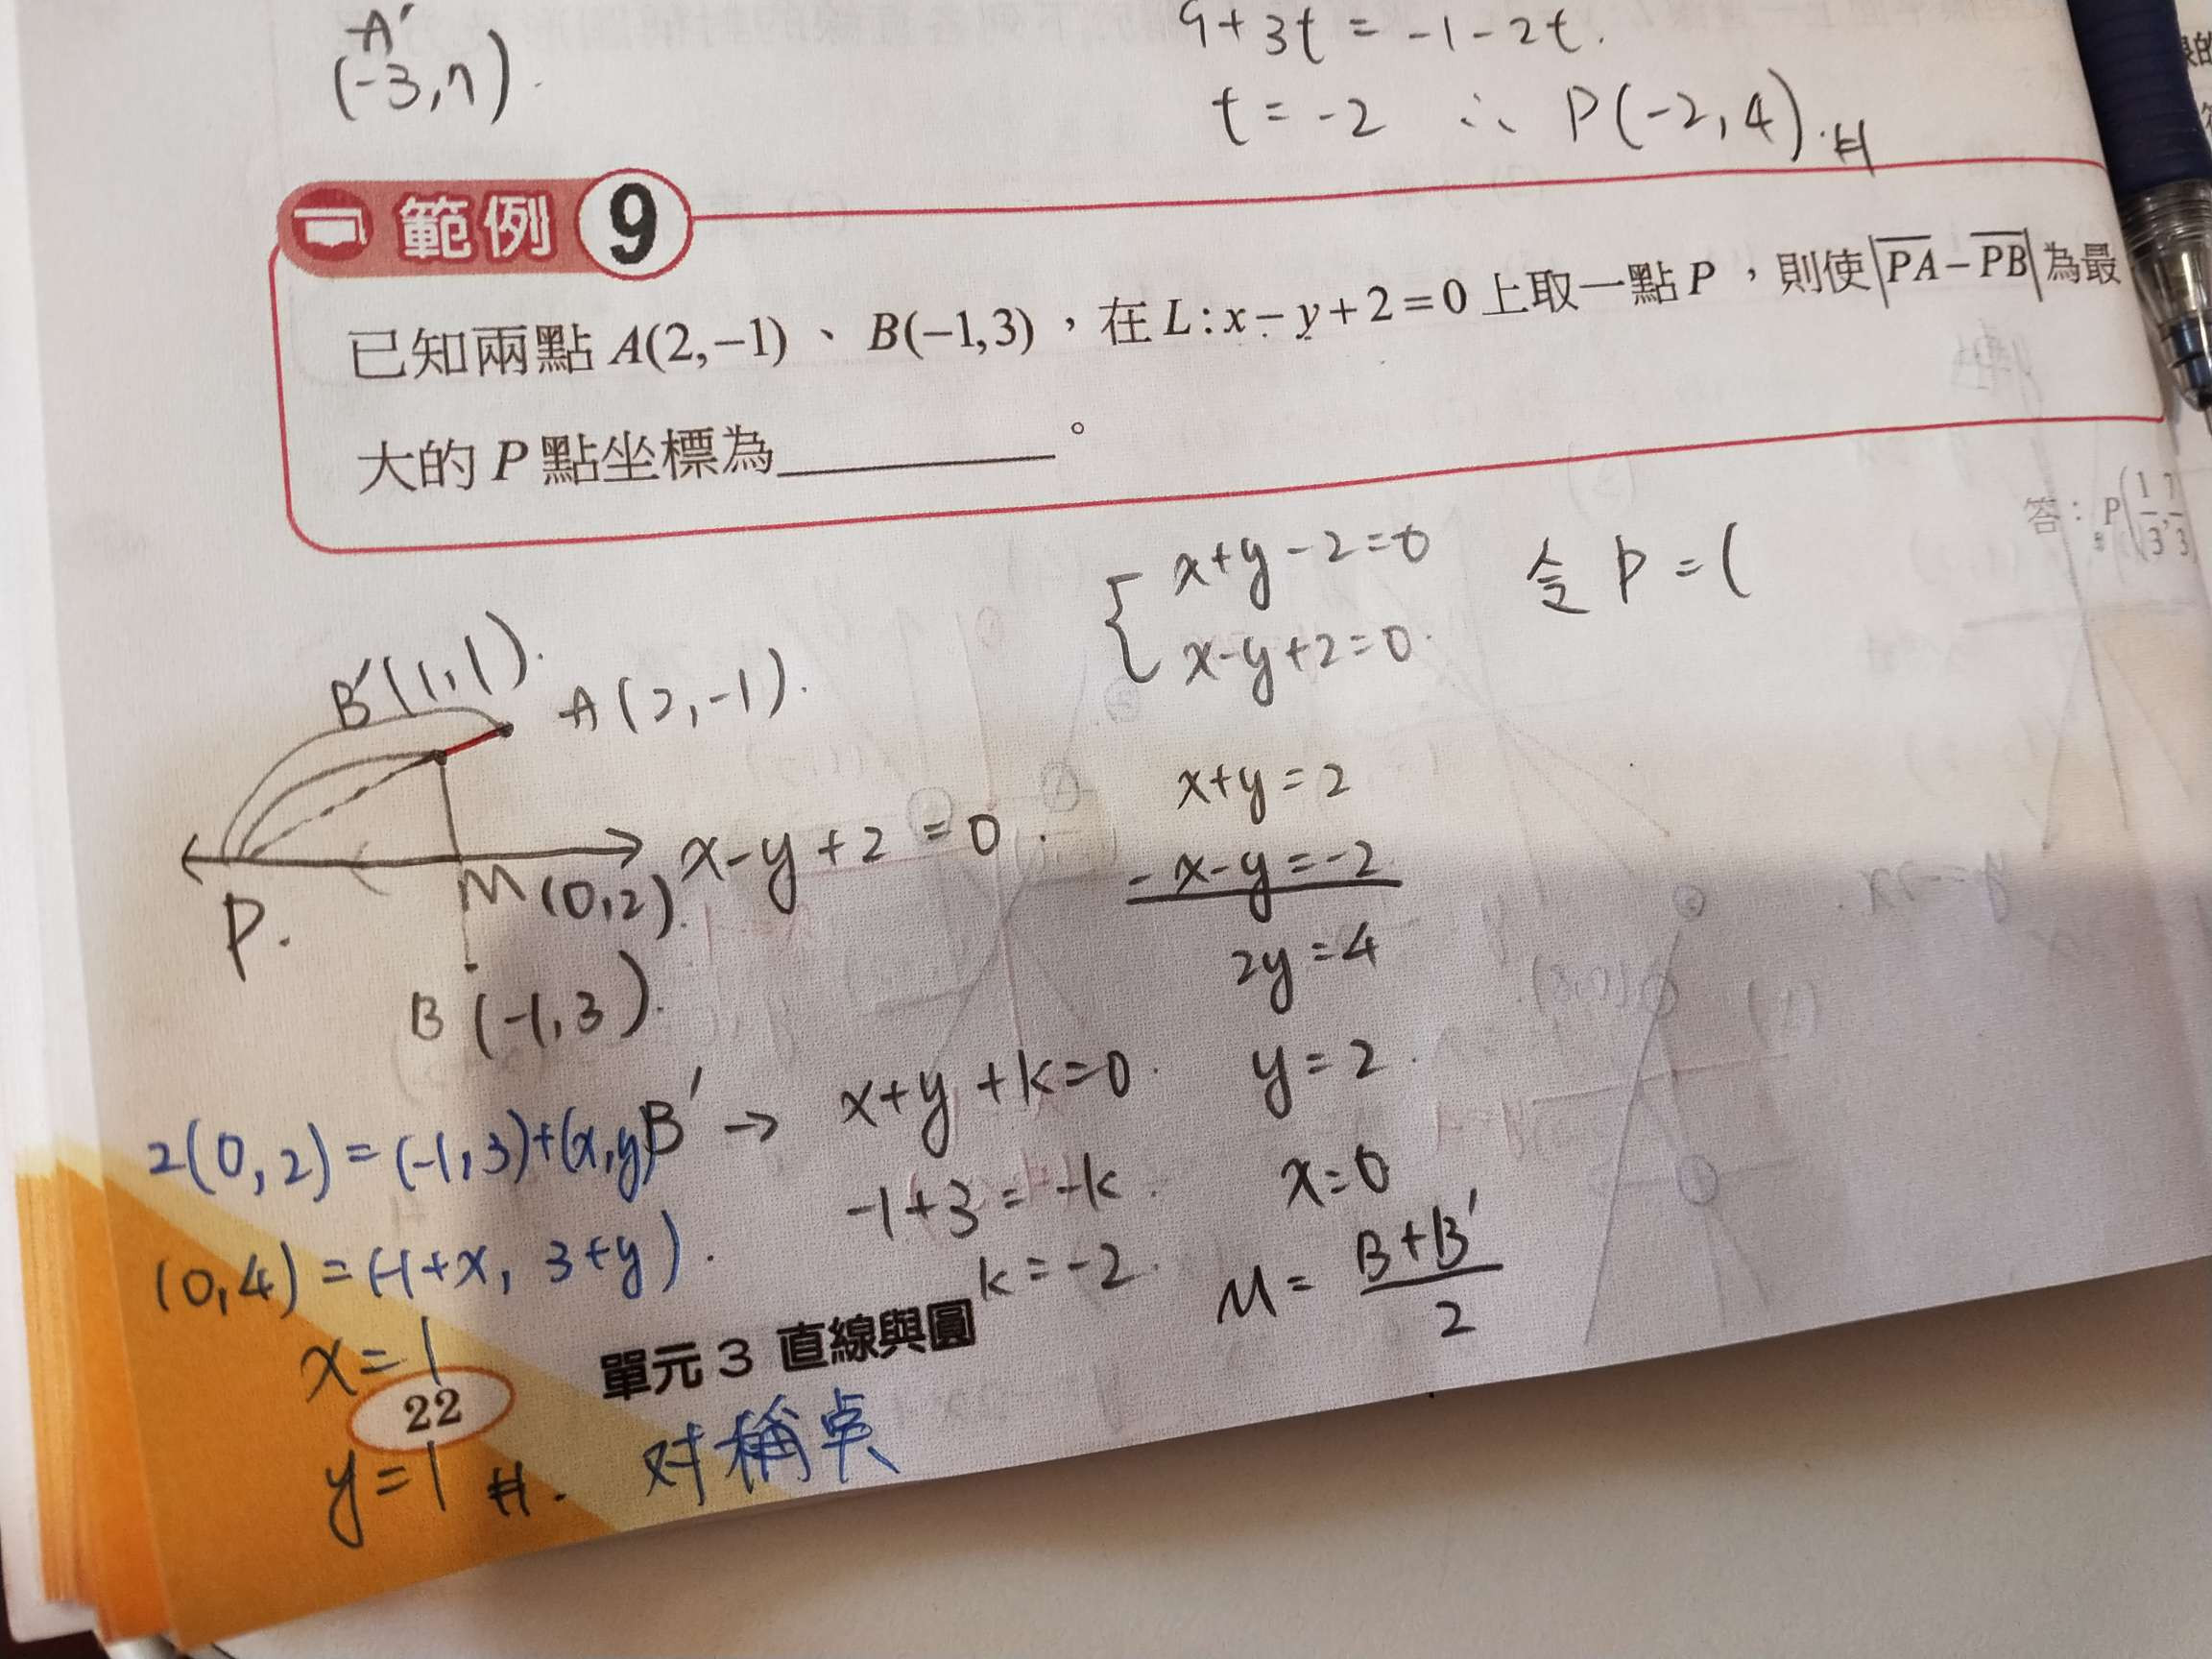 A'
(-3, 7).
9+3t = -1-2t.
t = -2 ∴ P(-2, 4).#
範例 9
已知兩點 A(2,−1)、B(−1,3),在 L:x−y+2=0 上取一點 P,則使|PA−PB|為最
大的 P 點坐標為__________。
答:P(1/3, 7/3)
x+y-2=0
x-y+2=0.
令 P = (
B'(1,1).
A(2,-1).
x-y+2=0.
M(0,2).
P.
B(-1,3).
x+y=2
- x-y=-2
2y=4
y=2.
x=0
M= B+B' / 2
B' → x+y+k=0.
-1+3=-k.
k=-2.
2(0,2)=(-1,3)+(x,y)
(0,4)=(-1+x, 3+y).
x=1
y=1 #.
22
單元 3 直線與圓
对稱点